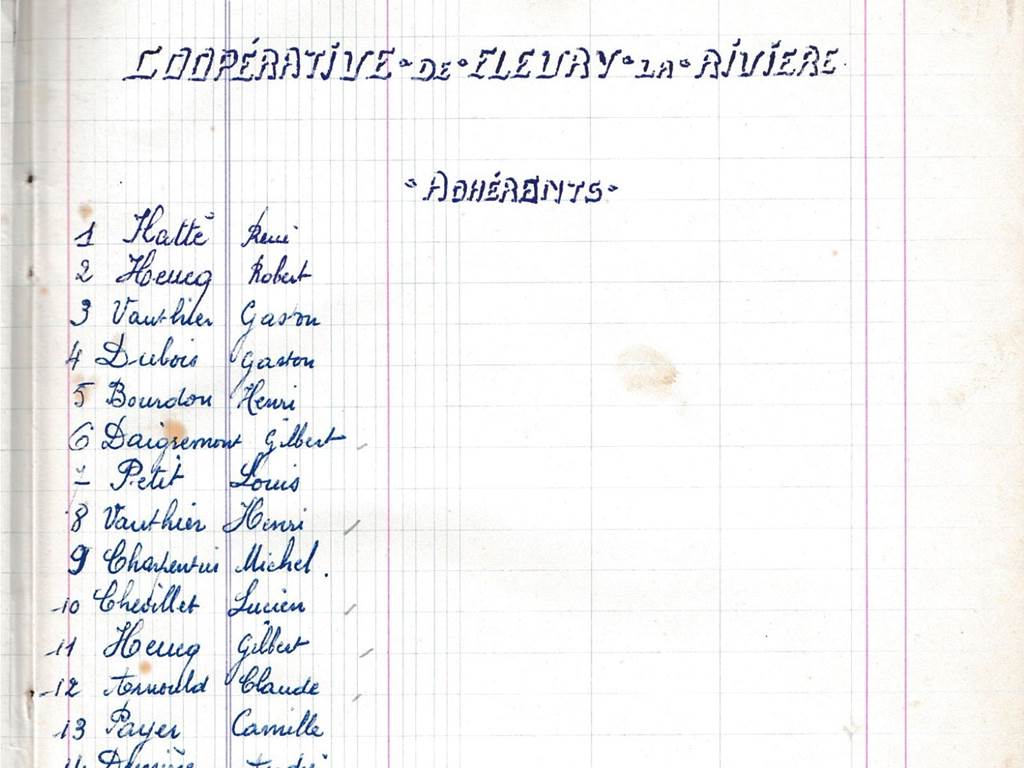 COOPÉRATIVE · DE · FLEURY · LA · RIVIÈRE
· ADHÉRENTS ·
1 Hatté René
2 Heucq Robert
3 Vauthier Gaston
4 Dubois Gaston
5 Bourdon Henri
6 Daigremont Gilbert
7 Petit Louis
8 Vauthier Henri
9 Charpentier Michel.
10 Chevillet Lucien
11 Heucq Gilbert
12 Arnould Claude
13 Payer Camille
14 André